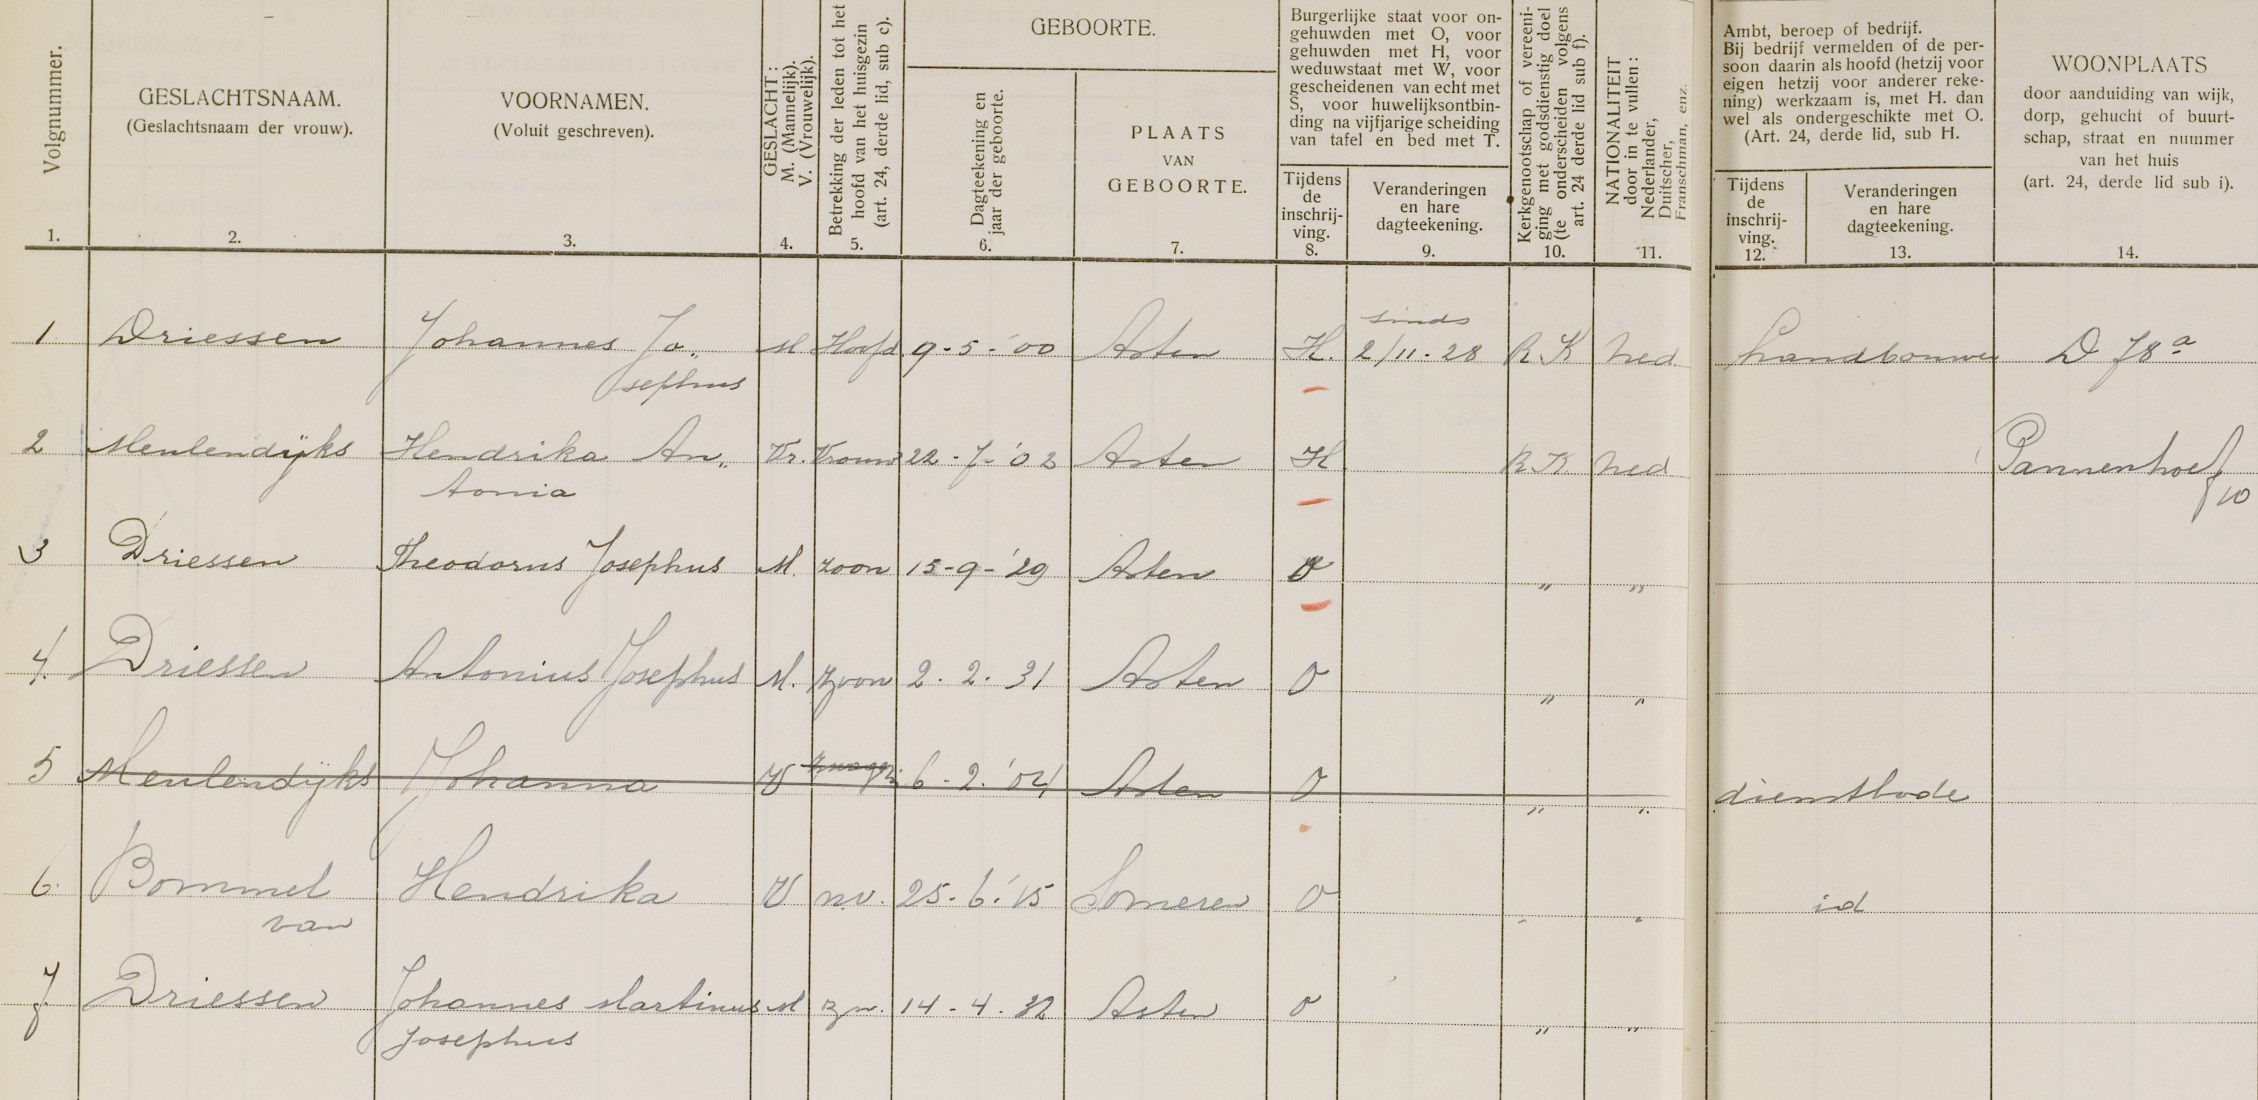 Volgnummer.
1.
GESLACHTSNAAM.
(Geslachtsnaam der vrouw).
2.
VOORNAMEN.
(Voluit geschreven).
3.
GESLACHT:
M. (Mannelijk).
V. (Vrouwelijk).
4.
Betrekking der leden tot het
hoofd van het huisgezin
(art. 24, derde lid, sub c).
5.
GEBOORTE.
Dagteekening en
jaar der geboorte.
6.
PLAATS
VAN
GEBOORTE.
7.
Burgerlijke staat voor on-
gehuwden met O, voor
gehuwden met H, voor
weduwstaat met W, voor
gescheidenen van echt met
S, voor huwelijksontbin-
ding na vijfjarige scheiding
van tafel en bed met T.
Tijdens
de
inschrij-
ving.
8.
Veranderingen
en hare
dagteekening.
9.
Kerkgenootschap of vereeni-
ging met godsdienstig doel
(te onderscheiden volgens
art. 24 derde lid sub f).
10.
NATIONALITEIT
door in te vullen:
Nederlander,
Duitscher,
Franschman, enz.
11.
Ambt, beroep of bedrijf.
Bij bedrijf vermelden of de per-
soon daarin als hoofd (hetzij voor
eigen hetzij voor anderer reke-
ning) werkzaam is, met H. dan
wel als ondergeschikte met O.
(Art. 24, derde lid, sub H.
Tijdens
de
inschrij-
ving.
12.
Veranderingen
en hare
dagteekening.
13.
WOONPLAATS
door aanduiding van wijk,
dorp, gehucht of buurt-
schap, straat en nummer
van het huis
(art. 24, derde lid sub i).
14.
1 Driessen Johannes Jo„ M Hoofd 9-5-'00 Asten H. sinds 2/11-28 R K Ned. Landbouwer D 78a
sephus
2 Meulendijks Hendrika An„ Vr. Vrouw 22-7-'02 Asten H R K Ned Pannenhoef
tonia 10
3 Driessen Theodorus Josephus M. zoon 15-9-'29 Asten O „ „
4. Driessen Antonius Josephus M. zoon 2.2.31 Asten O „ „
5 Meulendijks Johanna V 6-2.'04 Asten O „ „ dienstbode
6. Bommel Hendrika V n.v. 25-6-'15 Someren O „ „ id
van
7 Driessen Johannes Martinus M zn. 14-4.32 Asten O „ „
Josephus